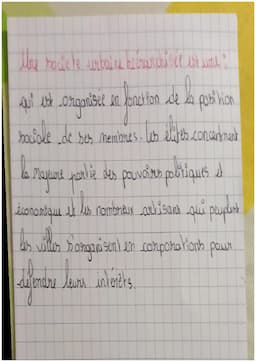 Une société urbaine hiérarchisée est une :
qui est organisée en fonction de la position
sociale de ses membres. les élites concentrent
la majeure partie des pouvoirs politiques et
économique et les nombreux artisans qui peuplent
les villes s'organisent en corporations pour
défendre leurs intérêts.